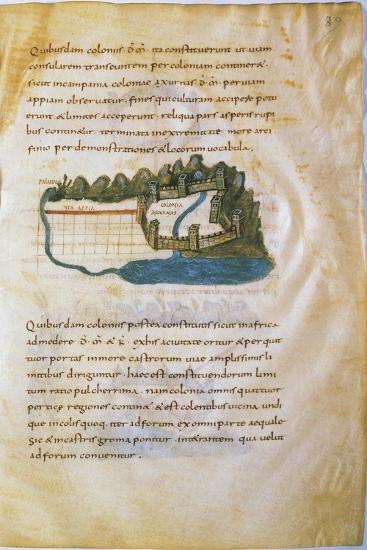 89
Quibusdam coloniis · d̄·m̄ · ita constituerunt ut uiam
consularem transeuntem per coloniam contineret ·
sicut incampania coloniae axurnas · d̄·m̄ · peruiam
appiam obseruatur · fines qui culturam accipere potu
erunt & limites acceperunt · reliqua pars asperis rupi
bus continetur · terminata inextremitate more arci
finio per demonstrationes & locorum uocabula ·
PALUDES
UIA APPIA
COLONIA
AXURNAS
Quibusdam coloniis postea constitutis sicut inafrica
admedere · d̄·m̄ & k̄ · exhis aciuitate oritur & per quat
tuor portas inmorē castrorum uiae amplissimis li
mitibus diriguntur · haec est constituendorum limi
tum ratio pulcherrima · nam colonia omnis quattuor
perticae regiones contin& & est colentibus uicina undi
que incolis quoq; iter adforum exomni parte aequale ·
Sic & incastris groma ponitur · intetrantem qua uelut
adforum conuenitur ·